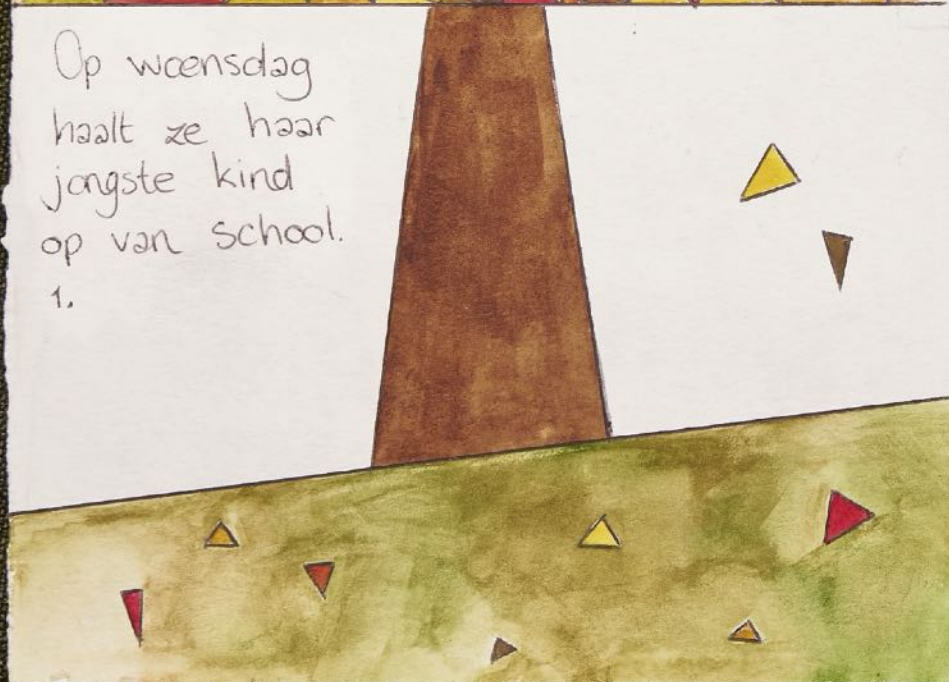 Op woensdag
haalt ze haar
jongste kind
op van school.
1.